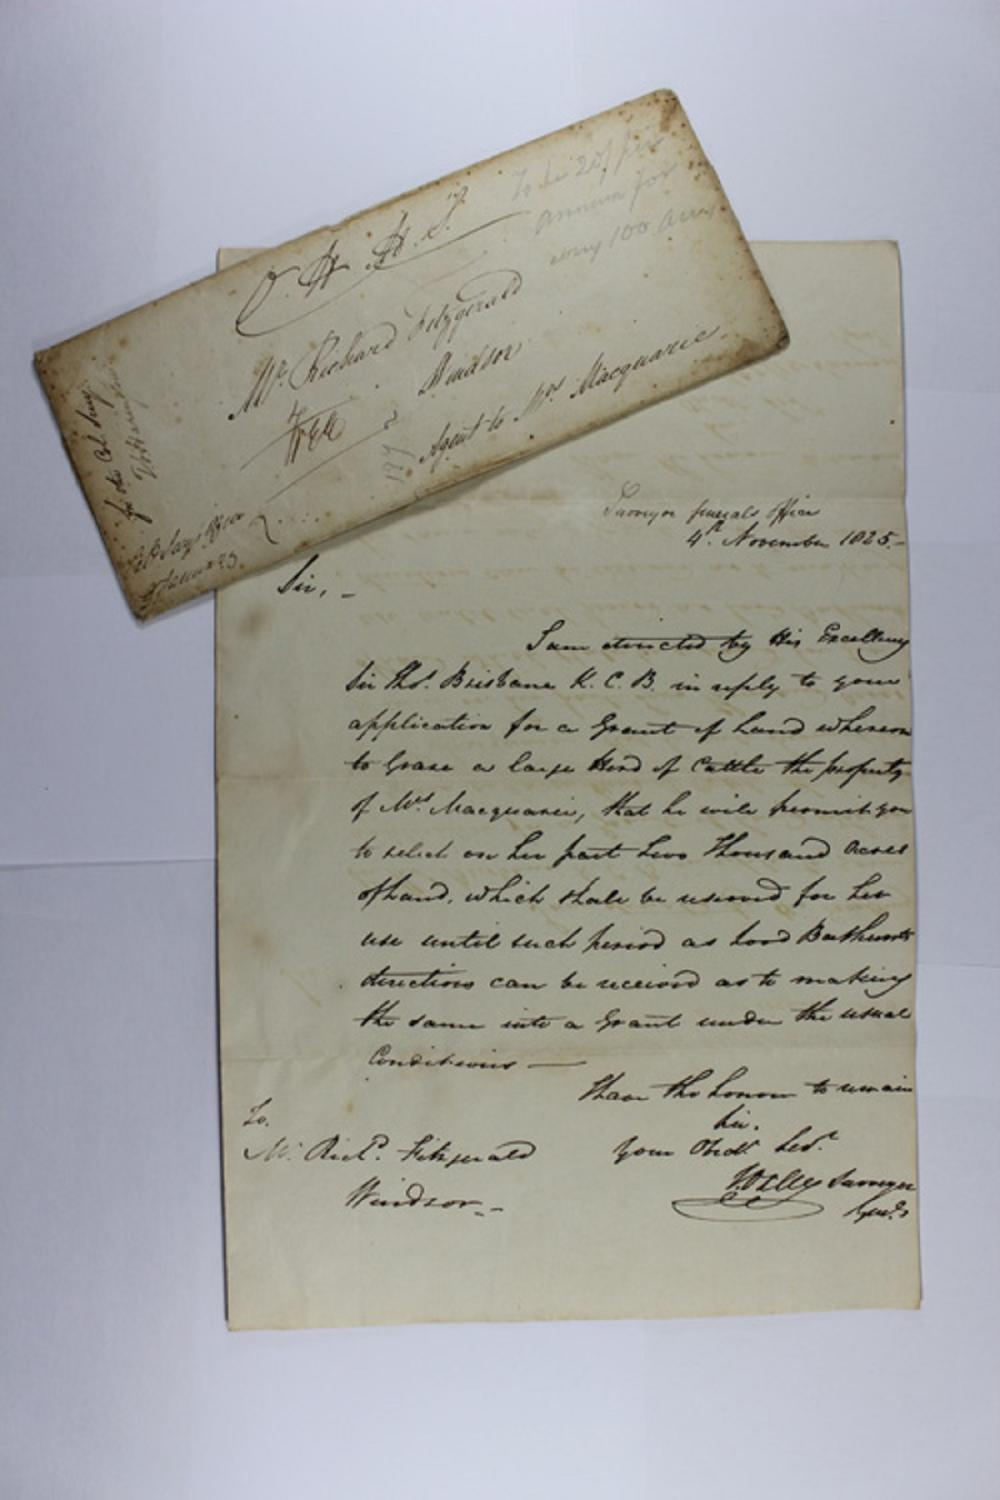 O. H. H. S.
Mr. Richard Fitzgerald
Windsor
Free
Agent to Mrs Macquarie
To be 20/ per
annum for
every 100 Acres
for the Col. Secy.
Surveyor Generals Office
4th. November 1825.-
Sir, -
I am directed by His Excellency
Sir Thos. Brisbane K. C. B. in reply to your
application for a Grant of Land whereon
to Graze a large Herd of Cattle the property
of Mrs Macquarie, that he will permit you
to select on her part two Thousand acres
of Land, which shall be reserved for her
use until such period as Lord Bathursts
directions can be received as to making
the same into a Grant under the usual
Conditions —
I have the honor to remain
Sir.
Your Obdt. Servt.
Surveyor
Genl.
To.
Mr. Richd. Fitzgerald
Windsor. -